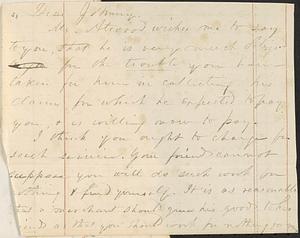 Dear Johnny
Mr. Atwood wishes me to say
to you, that he is very much
for the trouble you have
taken for him in collecting his
claim for which he expected to pay
you & is willing now to pay.
I think you ought to charge for
such service. Your friend cannot
suppose you will do such work for
nothing & find yourself. It is as reasonable
that a merchant should give his goods to his
friends as that you should work for nothing